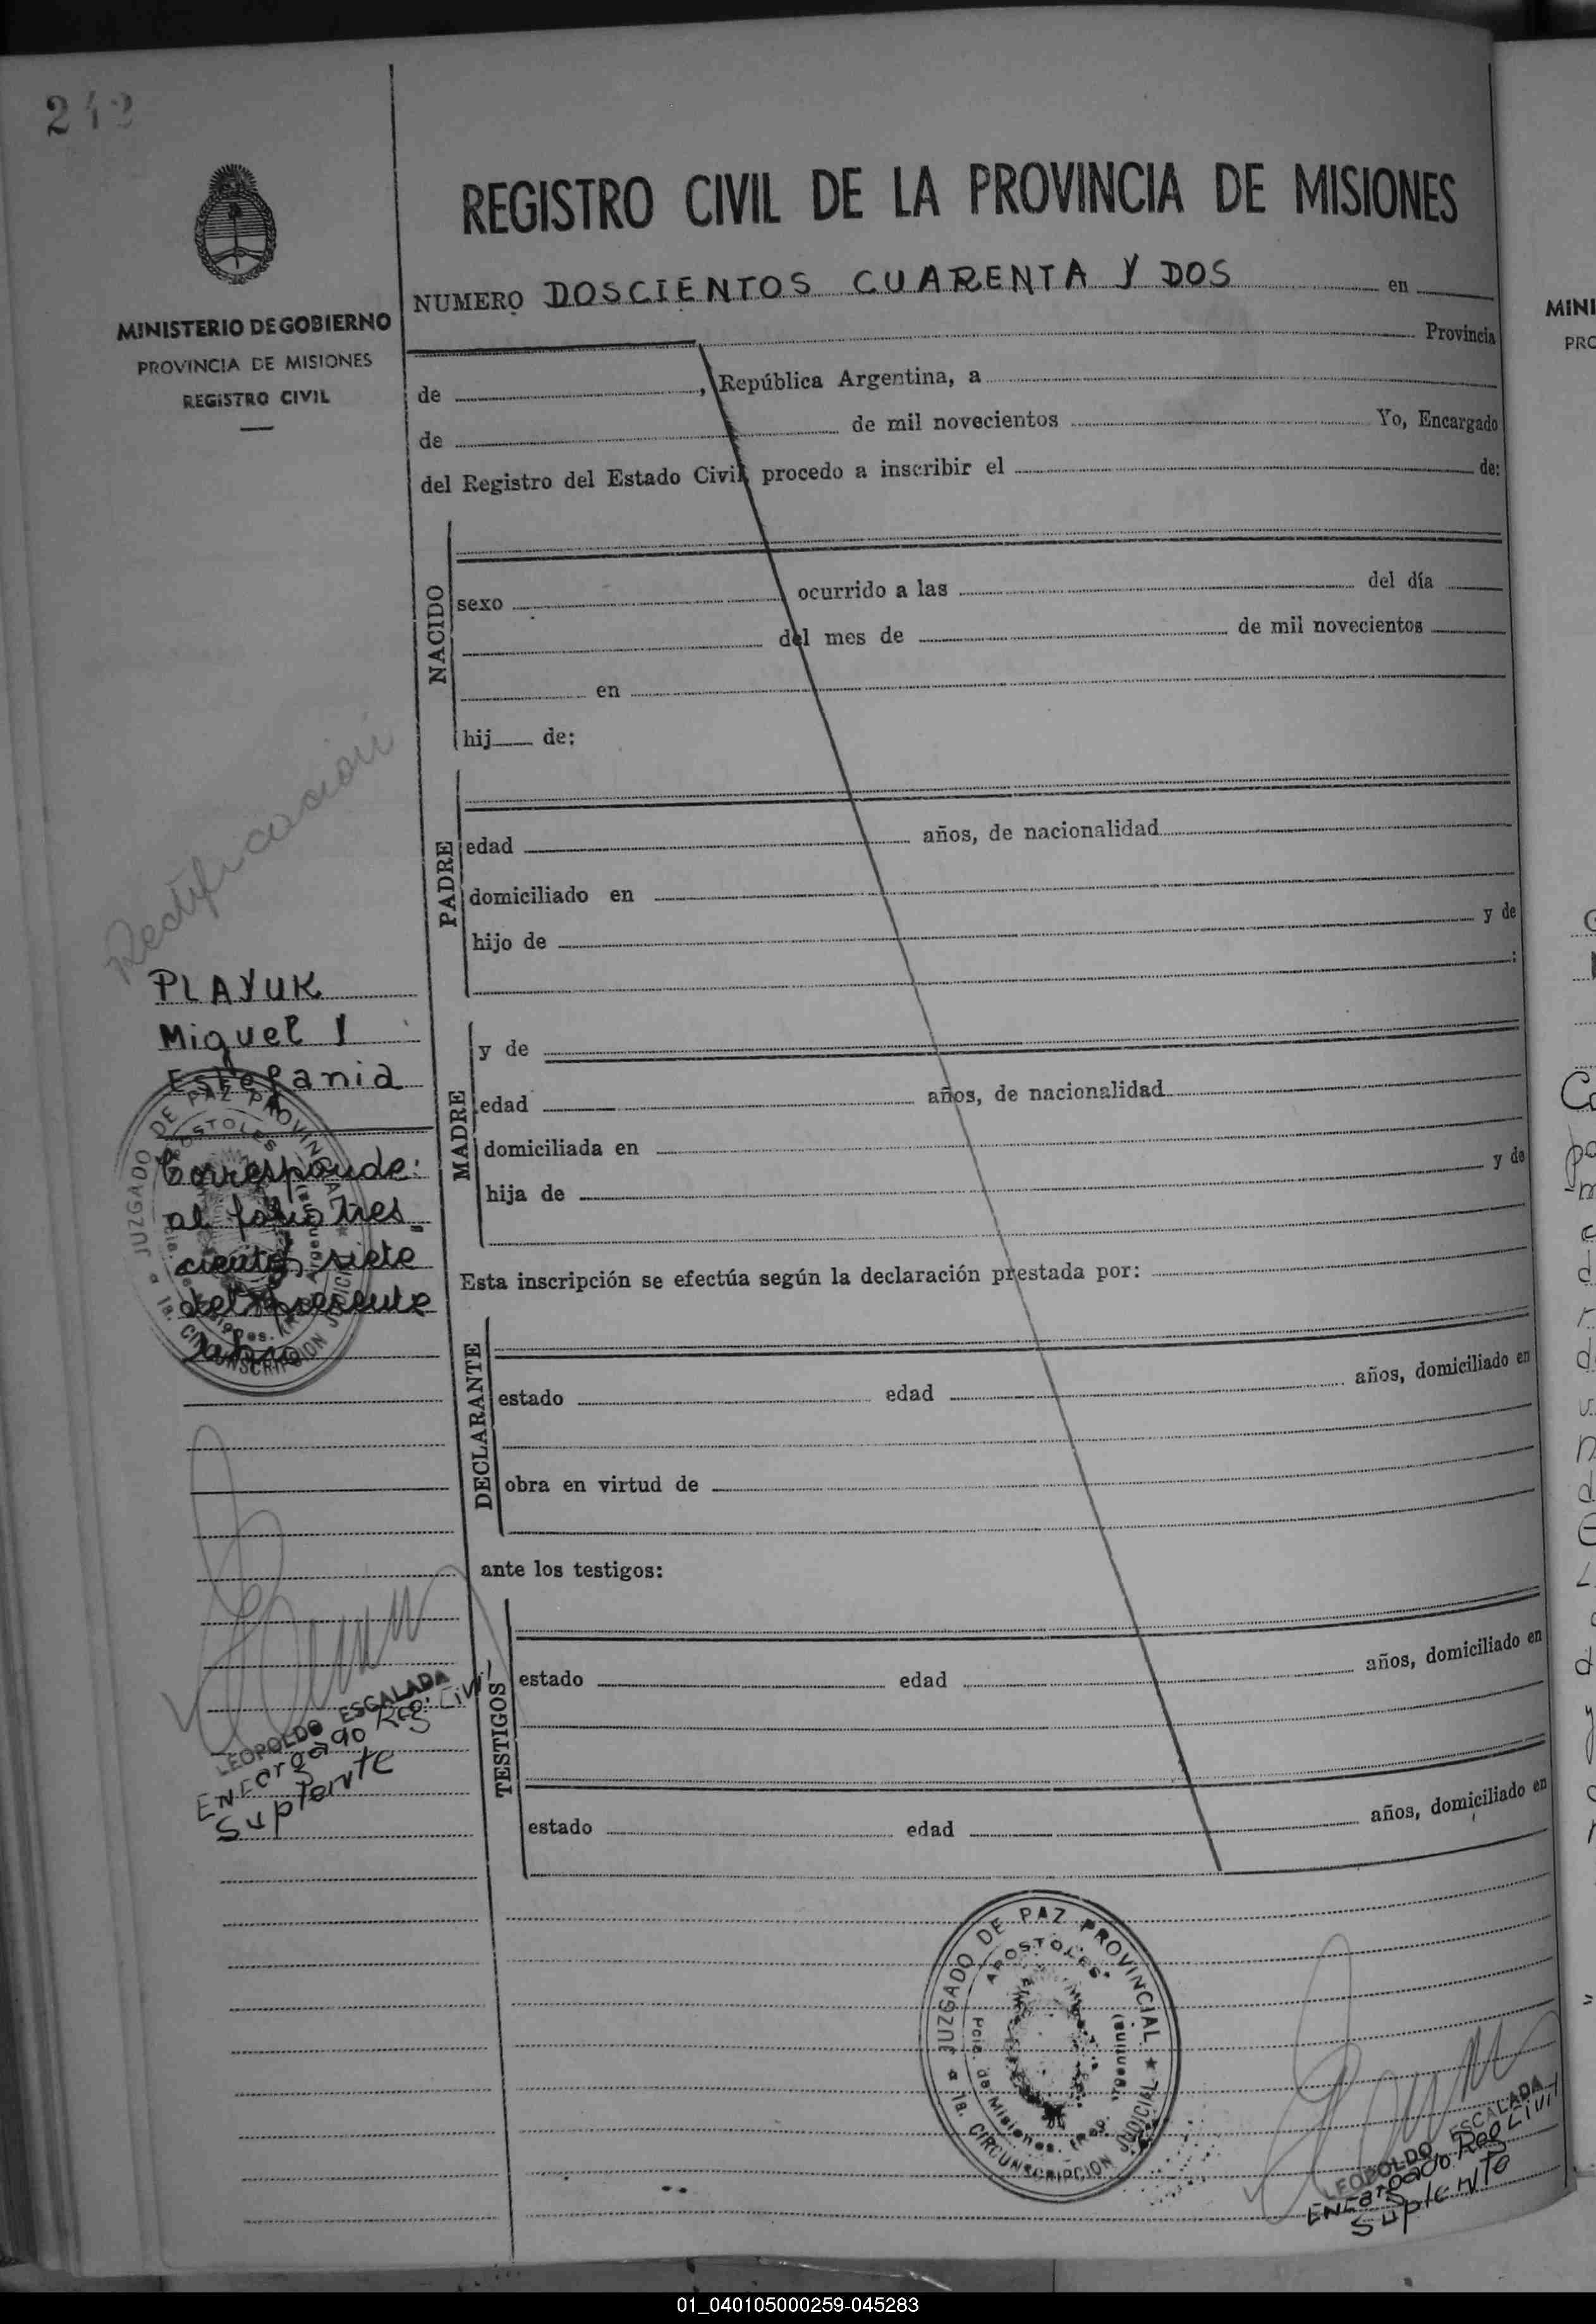 242
MINISTERIO DE GOBIERNO
PROVINCIA DE MISIONES
REGISTRO CIVIL
REGISTRO CIVIL DE LA PROVINCIA DE MISIONES
NUMERO DOSCIENTOS CUARENTA Y DOS en
Provincia
de , República Argentina, a
de de mil novecientos Yo, Encargado
del Registro del Estado Civil, procedo a inscribir el de:
NACIDO
sexo ocurrido a las del día
del mes de de mil novecientos
en
hij de:
PADRE
edad años, de nacionalidad
domiciliado en
hijo de y de
:
MADRE
y de
edad años, de nacionalidad
domiciliada en
hija de y de
Esta inscripción se efectúa según la declaración prestada por:
DECLARANTE
estado edad años, domiciliado en
obra en virtud de
ante los testigos:
TESTIGOS
estado edad años, domiciliado en
estado edad años, domiciliado en
Rectificación
PLAYUK
Miguel y
Estefania
Corresponde:
al folio tres
cientos siete
del presente
libro
LEOPOLDO ESCALADA
Encargado Reg. Civil
Suplente
JUZGADO DE PAZ PROVINCIAL
APOSTOLES
Pcia. de Misiones. (Rep. Argentina)
1a. CIRCUNSCRIPCION JUDICIAL
JUZGADO DE PAZ PROVINCIAL
APOSTOLES
Pcia. de Misiones. (Rep. Argentina)
1a. CIRCUNSCRIPCION JUDICIAL
LEOPOLDO ESCALADA
Encargado Reg Civil
Suplente
MINI
PRO
01_040105000259-045283